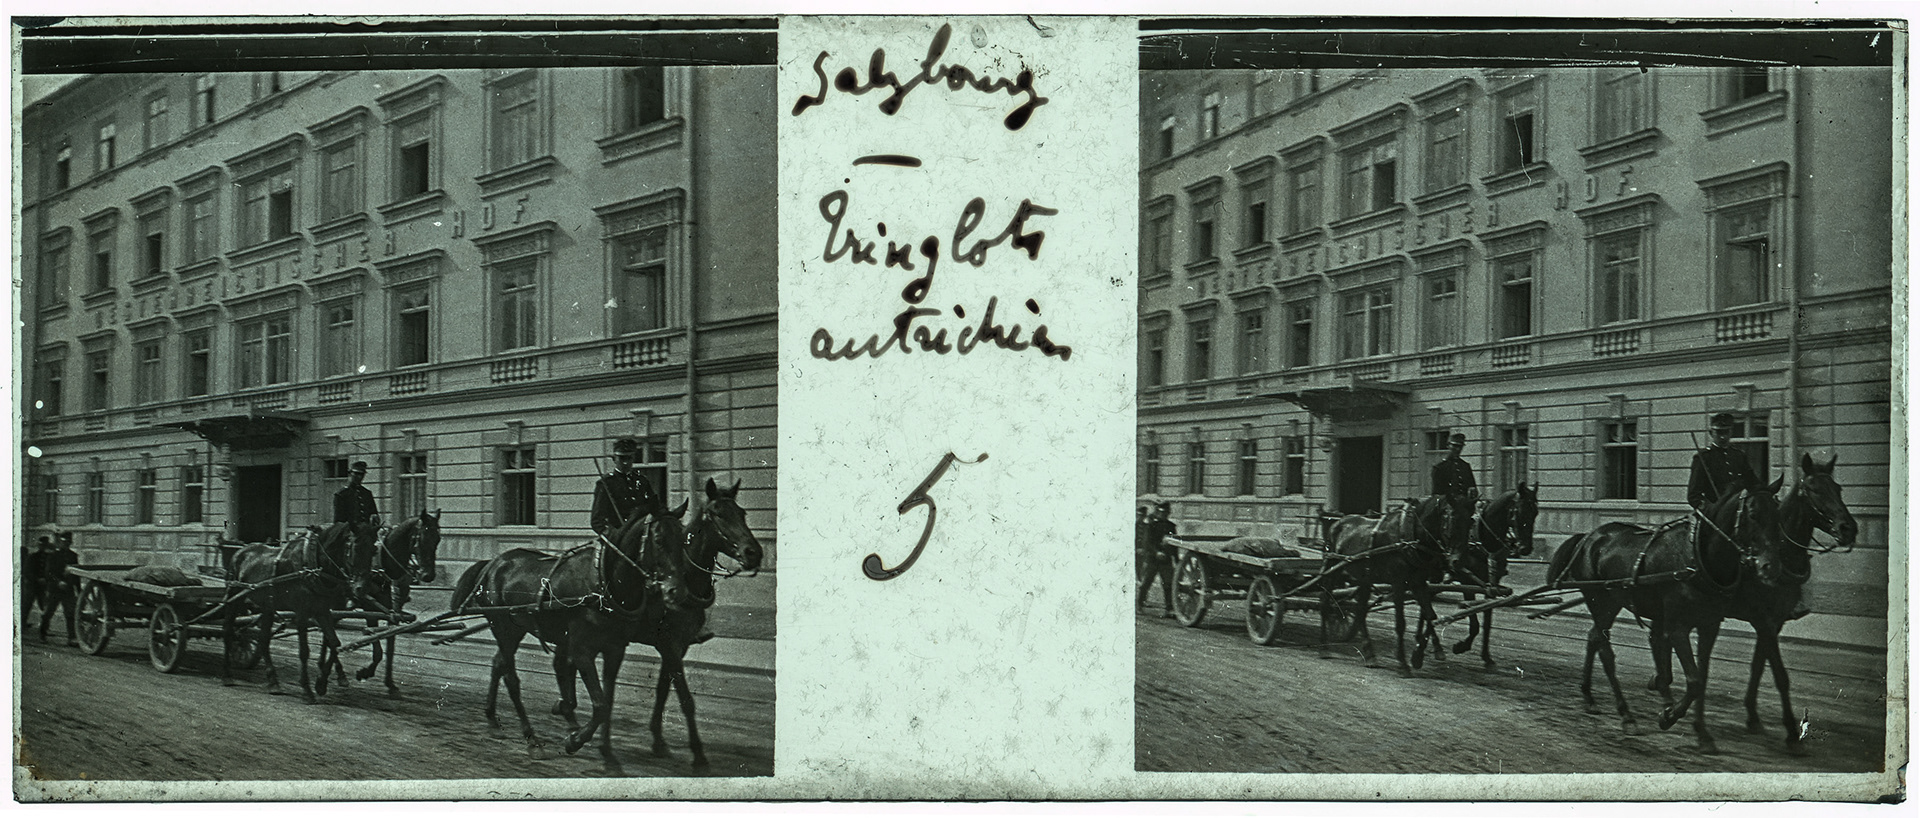 OESTERREICHISCHER HOF
Salzbourg
Tringlots
autrichiens
5
OESTERREICHISCHER HOF